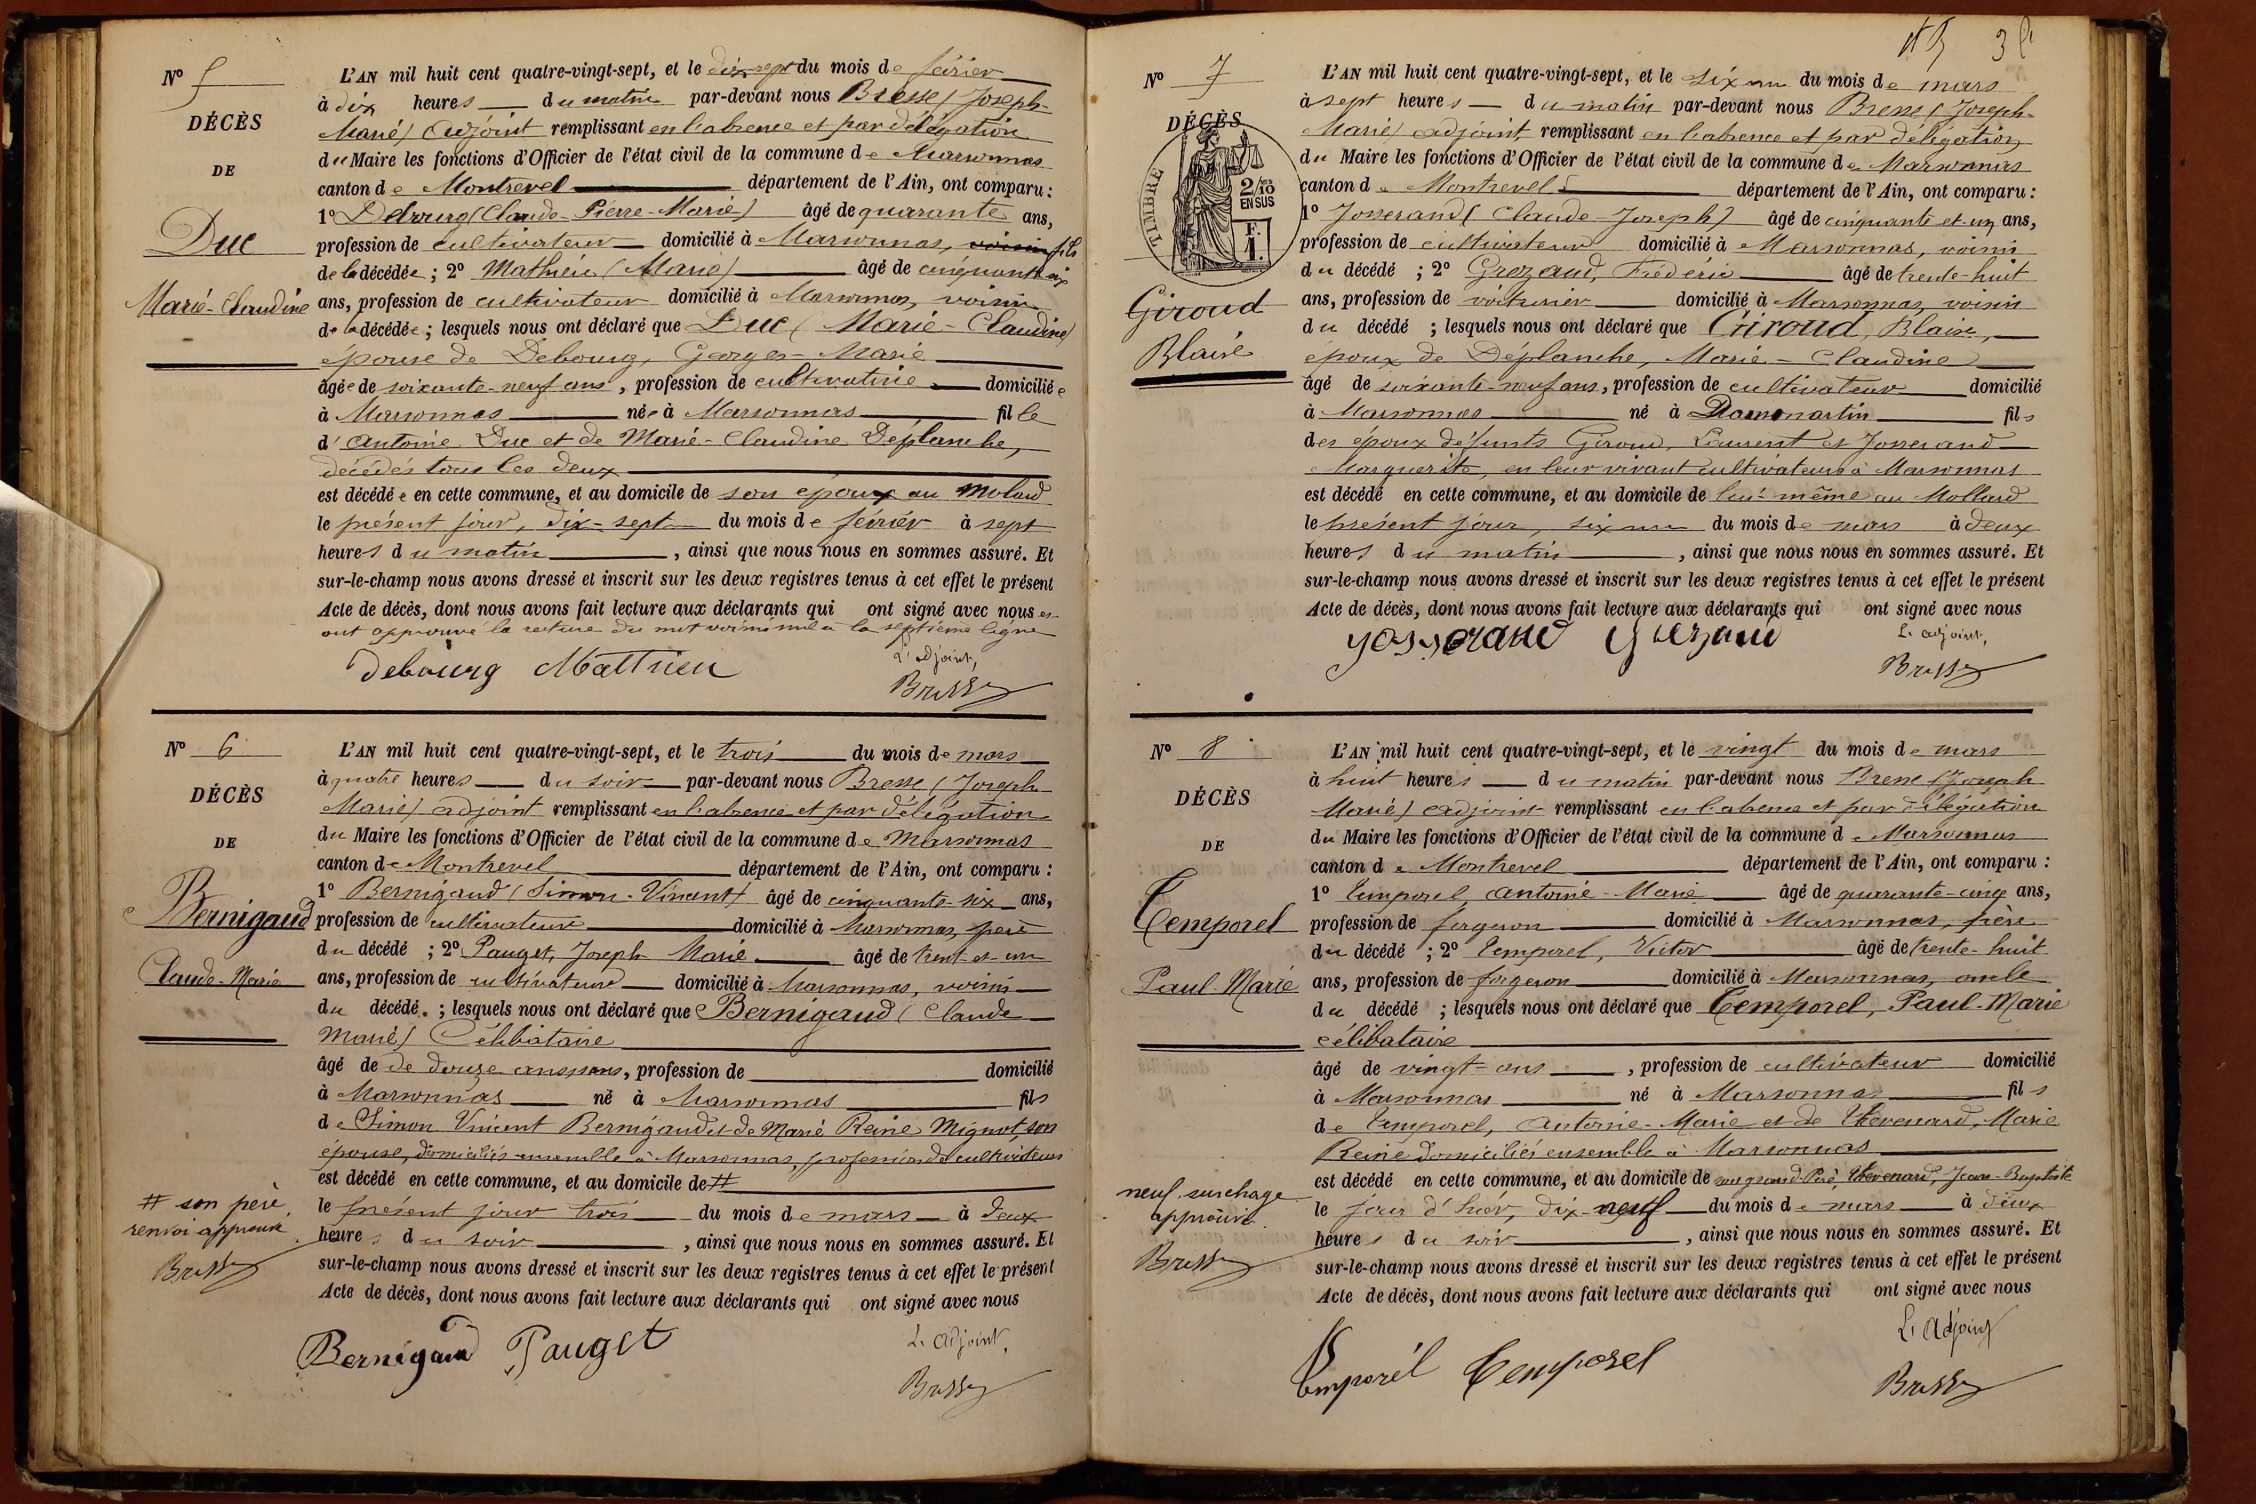 N° 5
DÉCÈS
DE
Duc
Marie-Claudine
L'AN mil huit cent quatre-vingt-sept, et le dix-sept du mois de février
à dix heures du matin par-devant nous Bresse (Joseph-
Marie) adjoint remplissant en l'absence et par délégation
du Maire les fonctions d'Officier de l'état civil de la commune de Marsonnas
canton de Montrevel département de l'Ain, ont comparu :
1° Debourg (Claude-Pierre-Marie) âgé de quarante ans,
profession de cultivateur domicilié à Marsonnas, voisin fils
de la décédée ; 2° Mathieu (Marie) âgé de cinquante six
ans, profession de cultivateur domicilié à Marsonnas, voisin
de la décédée ; lesquels nous ont déclaré que Duc (Marie-Claudine)
épouse de Debourg, Georges-Marie
âgée de soixante-neuf ans, profession de cultivatrice domiciliée
à Marsonnas née à Marsonnas fille
d'Antoine Duc et de Marie-Claudine Déplanche,
décédés tous les deux
est décédée en cette commune, et au domicile de son époux au Molard
le présent jour, dix-sept du mois de février à sept
heures du matin, ainsi que nous nous en sommes assuré. Et
sur-le-champ nous avons dressé et inscrit sur les deux registres tenus à cet effet le présent
Acte de décès, dont nous avons fait lecture aux déclarants qui ont signé avec nous et
ont approuvé la rature du mot voisin à la septième ligne
Debourg Matthieu L'adjoint,
Bresse
N° 6
DÉCÈS
DE
Bernigaud
Claude-Marie
# son père,
renvoi approuvé
Bresse
L'AN mil huit cent quatre-vingt-sept, et le trois du mois de mars
à quatre heures du soir par-devant nous Bresse (Joseph
Marie) adjoint remplissant en l'absence et par délégation
du Maire les fonctions d'Officier de l'état civil de la commune de Marsonnas
canton de Montrevel département de l'Ain, ont comparu :
1° Bernigaud (Simon-Vincent) âgé de cinquante-six ans,
profession de cultivateur domicilié à Marsonnas, père
du décédé ; 2° Pauget, Joseph Marie âgé de trent-et-un
ans, profession de cultivateur domicilié à Marsonnas, voisin
du décédé. ; lesquels nous ont déclaré que Bernigaud (Claude
Marie) Célibataire
âgé de de douze ans, profession de domicilié
à Marsonnas né à Marsonnas fils
de Simon Vincent Bernigaud et de Marie Reine Mignot, son
épouse, domiciliés ensemble à Marsonnas, profession de cultivateurs
est décédé en cette commune, et au domicile de #
le présent jour trois du mois de mars à deux
heures du soir, ainsi que nous nous en sommes assuré. Et
sur-le-champ nous avons dressé et inscrit sur les deux registres tenus à cet effet le présent
Acte de décès, dont nous avons fait lecture aux déclarants qui ont signé avec nous
Bernigaud Pauget L'adjoint,
Bresse
N° 7
DÉCÈS
TIMBRE
2/10
EN SUS
F.
1.
Giroud
Blaise
L'AN mil huit cent quatre-vingt-sept, et le six du mois de mars
à sept heures du matin par-devant nous Bresse (Joseph-
Marie) adjoint remplissant en l'absence et par délégation
du Maire les fonctions d'Officier de l'état civil de la commune de Marsonnas
canton de Montrevel département de l'Ain, ont comparu :
1° Josserand (Claude-Joseph) âgé de cinquante et un ans,
profession de cultivateur domicilié à Marsonnas, voisin
du décédé ; 2° Grezaud, Frédéric âgé de trente-huit
ans, profession de voiturier domicilié à Marsonnas, voisin
du décédé ; lesquels nous ont déclaré que Giroud, Blaise,
époux de Déplanche, Marie-Claudine
âgé de soixante-neuf ans, profession de cultivateur domicilié
à Marsonnas né à Dommartin fils
des époux défunts Giroud, Laurent et Josserand
Marguerite, en leur vivant cultivateurs à Marsonnas
est décédé en cette commune, et au domicile de lui-même au Mollard
le présent jour, six du mois de mars à deux
heures du matin, ainsi que nous nous en sommes assuré. Et
sur-le-champ nous avons dressé et inscrit sur les deux registres tenus à cet effet le présent
Acte de décès, dont nous avons fait lecture aux déclarants qui ont signé avec nous
Josserand Grezaud L'adjoint,
Bresse
N° 8
DÉCÈS
DE
Temporel
Paul-Marie
neuf surchage
approuvé
Bresse
L'AN mil huit cent quatre-vingt-sept, et le vingt du mois de mars
à huit heures du matin par-devant nous Bresse (Joseph
Marie) adjoint remplissant en l'absence et par délégation
du Maire les fonctions d'Officier de l'état civil de la commune de Marsonnas
canton de Montrevel département de l'Ain, ont comparu :
1° Temporel, Antoine-Marie âgé de quarante-cinq ans,
profession de forgeron domicilié à Marsonnas, père
du décédé ; 2° Temporel, Victor âgé de trente-huit
ans, profession de forgeron domicilié à Marsonnas, oncle
du décédé ; lesquels nous ont déclaré que Temporel, Paul-Marie
célibataire
âgé de vingt-ans, profession de cultivateur domicilié
à Marsonnas né à Marsonnas fils
de Temporel, Antoine-Marie et de Thevenard, Marie
Reine domiciliés ensemble à Marsonnas
est décédé en cette commune, et au domicile de son grand-Père, Thevenard, Jean-Baptiste
le jour d'hier, dix-neuf du mois de mars à deux
heures du soir, ainsi que nous nous en sommes assuré. Et
sur-le-champ nous avons dressé et inscrit sur les deux registres tenus à cet effet le présent
Acte de décès, dont nous avons fait lecture aux déclarants qui ont signé avec nous
Temporel Temporel L'Adjoint
Bresse